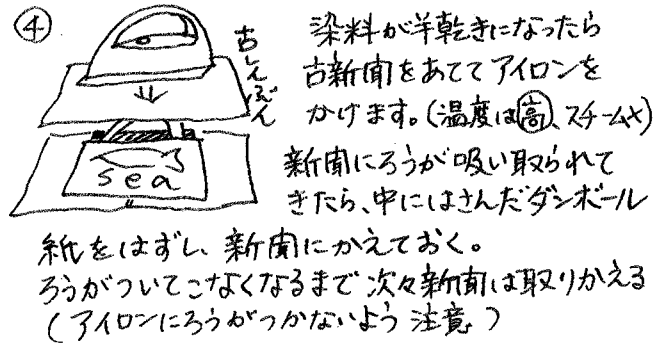 ④
古しんぶん
sea
染料が半乾きになったら
古新聞をあててアイロンを
かけます。(温度は高、スチーム×)
新聞にろうが吸い取られて
きたら、中にはさんだダンボール
紙をはずし、新聞にかえておく。
ろうがついてこなくなるまで次々新聞は取りかえる
(アイロンにろうがつかないよう注意)